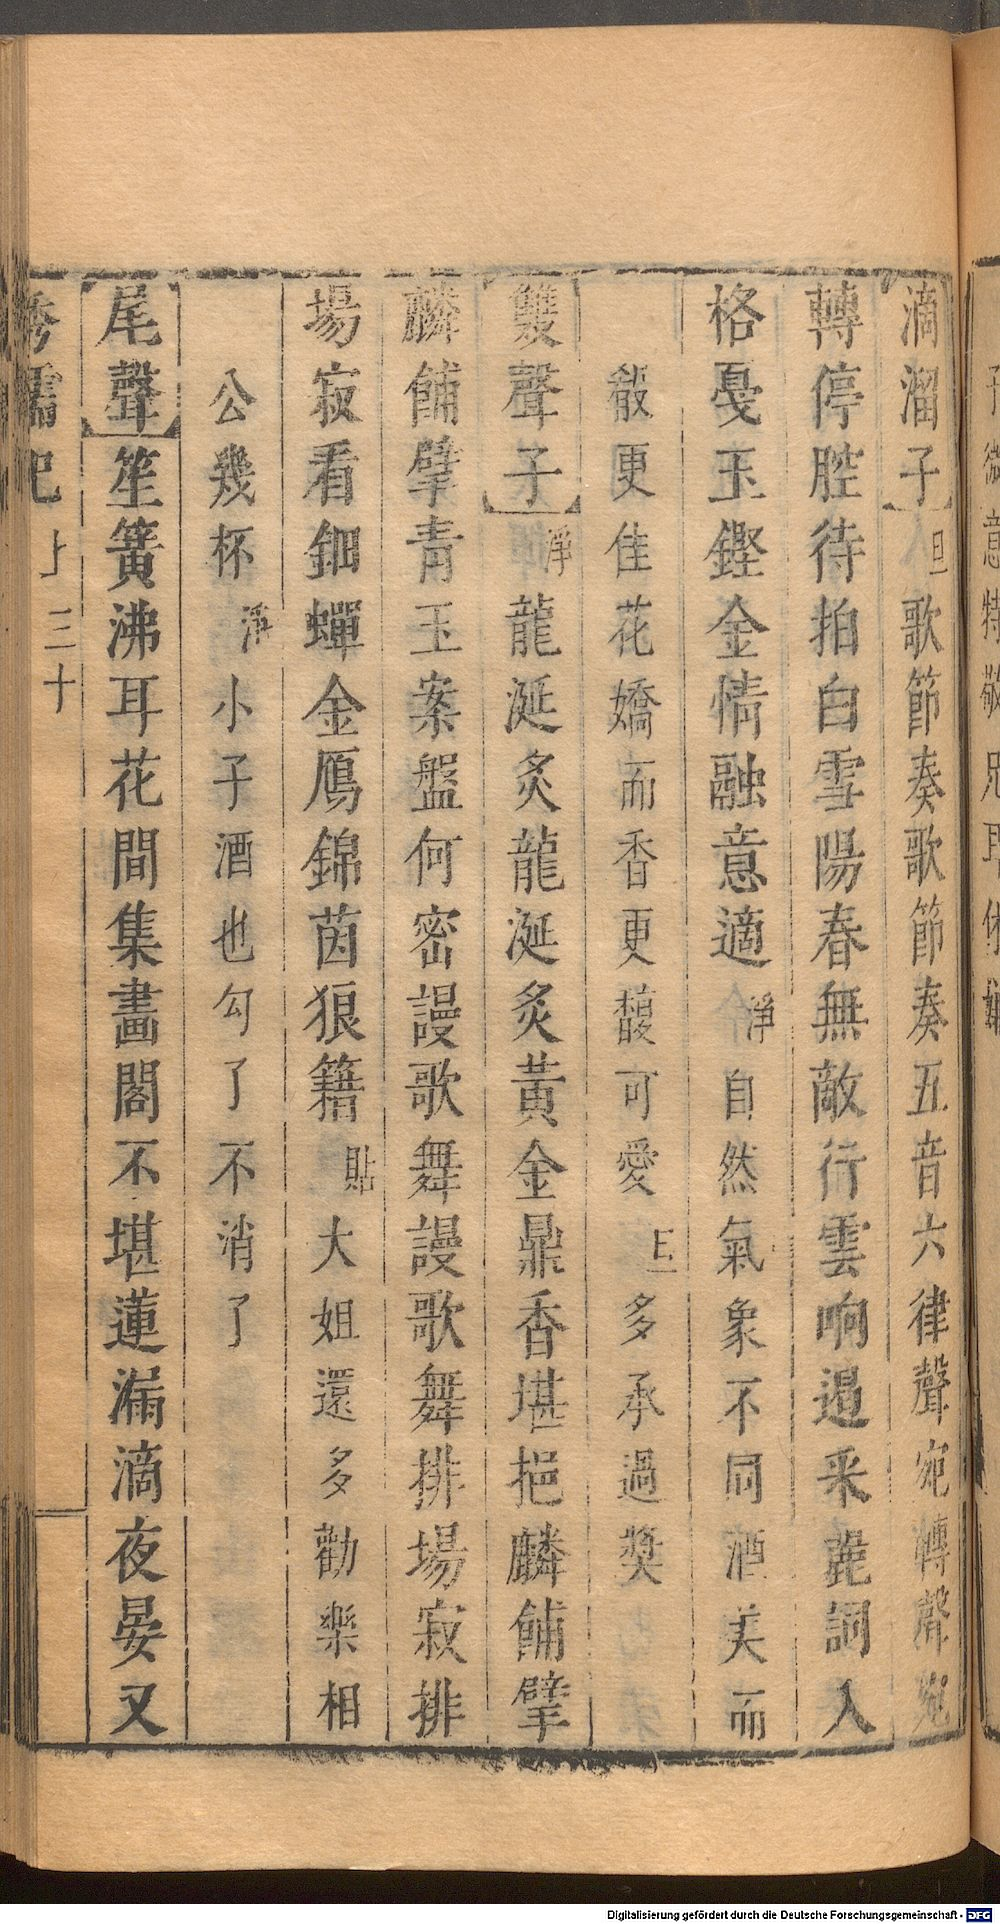 滴溜子旦歌節奏歌節奏五音六律聲宛轉聲宛
轉停腔待拍白雪陽春無敵行雲响遏来麗詞入
格戛玉鏗金情融意適淨自然氣象不同酒美而
殽更佳花嬌而香更馥可愛旦多承過奬
雙聲子淨龍涎炙龍涎炙黃金鼎香堪挹麟餔擘
麟餔擘青玉案盤何密謾歌舞謾歌舞排場寂排
場寂看鈿蟬金鴈錦茵狼籍貼大姐還多勸樂相
公幾杯淨小子酒也勾了不消了
尾聲笙簧沸耳花間集畫閣不堪蓮漏滴夜晏又
繡襦記 上 三十
Digitalisierung gefördert durch die Deutsche Forschungsgemeinschaft - DFG